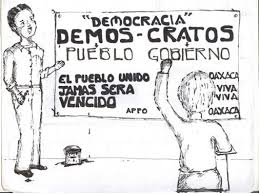 "DEMOCRACIA"
DEMOS-CRATOS
PUEBLO GOBIERNO
EL PUEBLO UNIDO
JAMAS SERA
VENCIDO
APPO
OAXACA
VIVA
VIVA
OAXACA